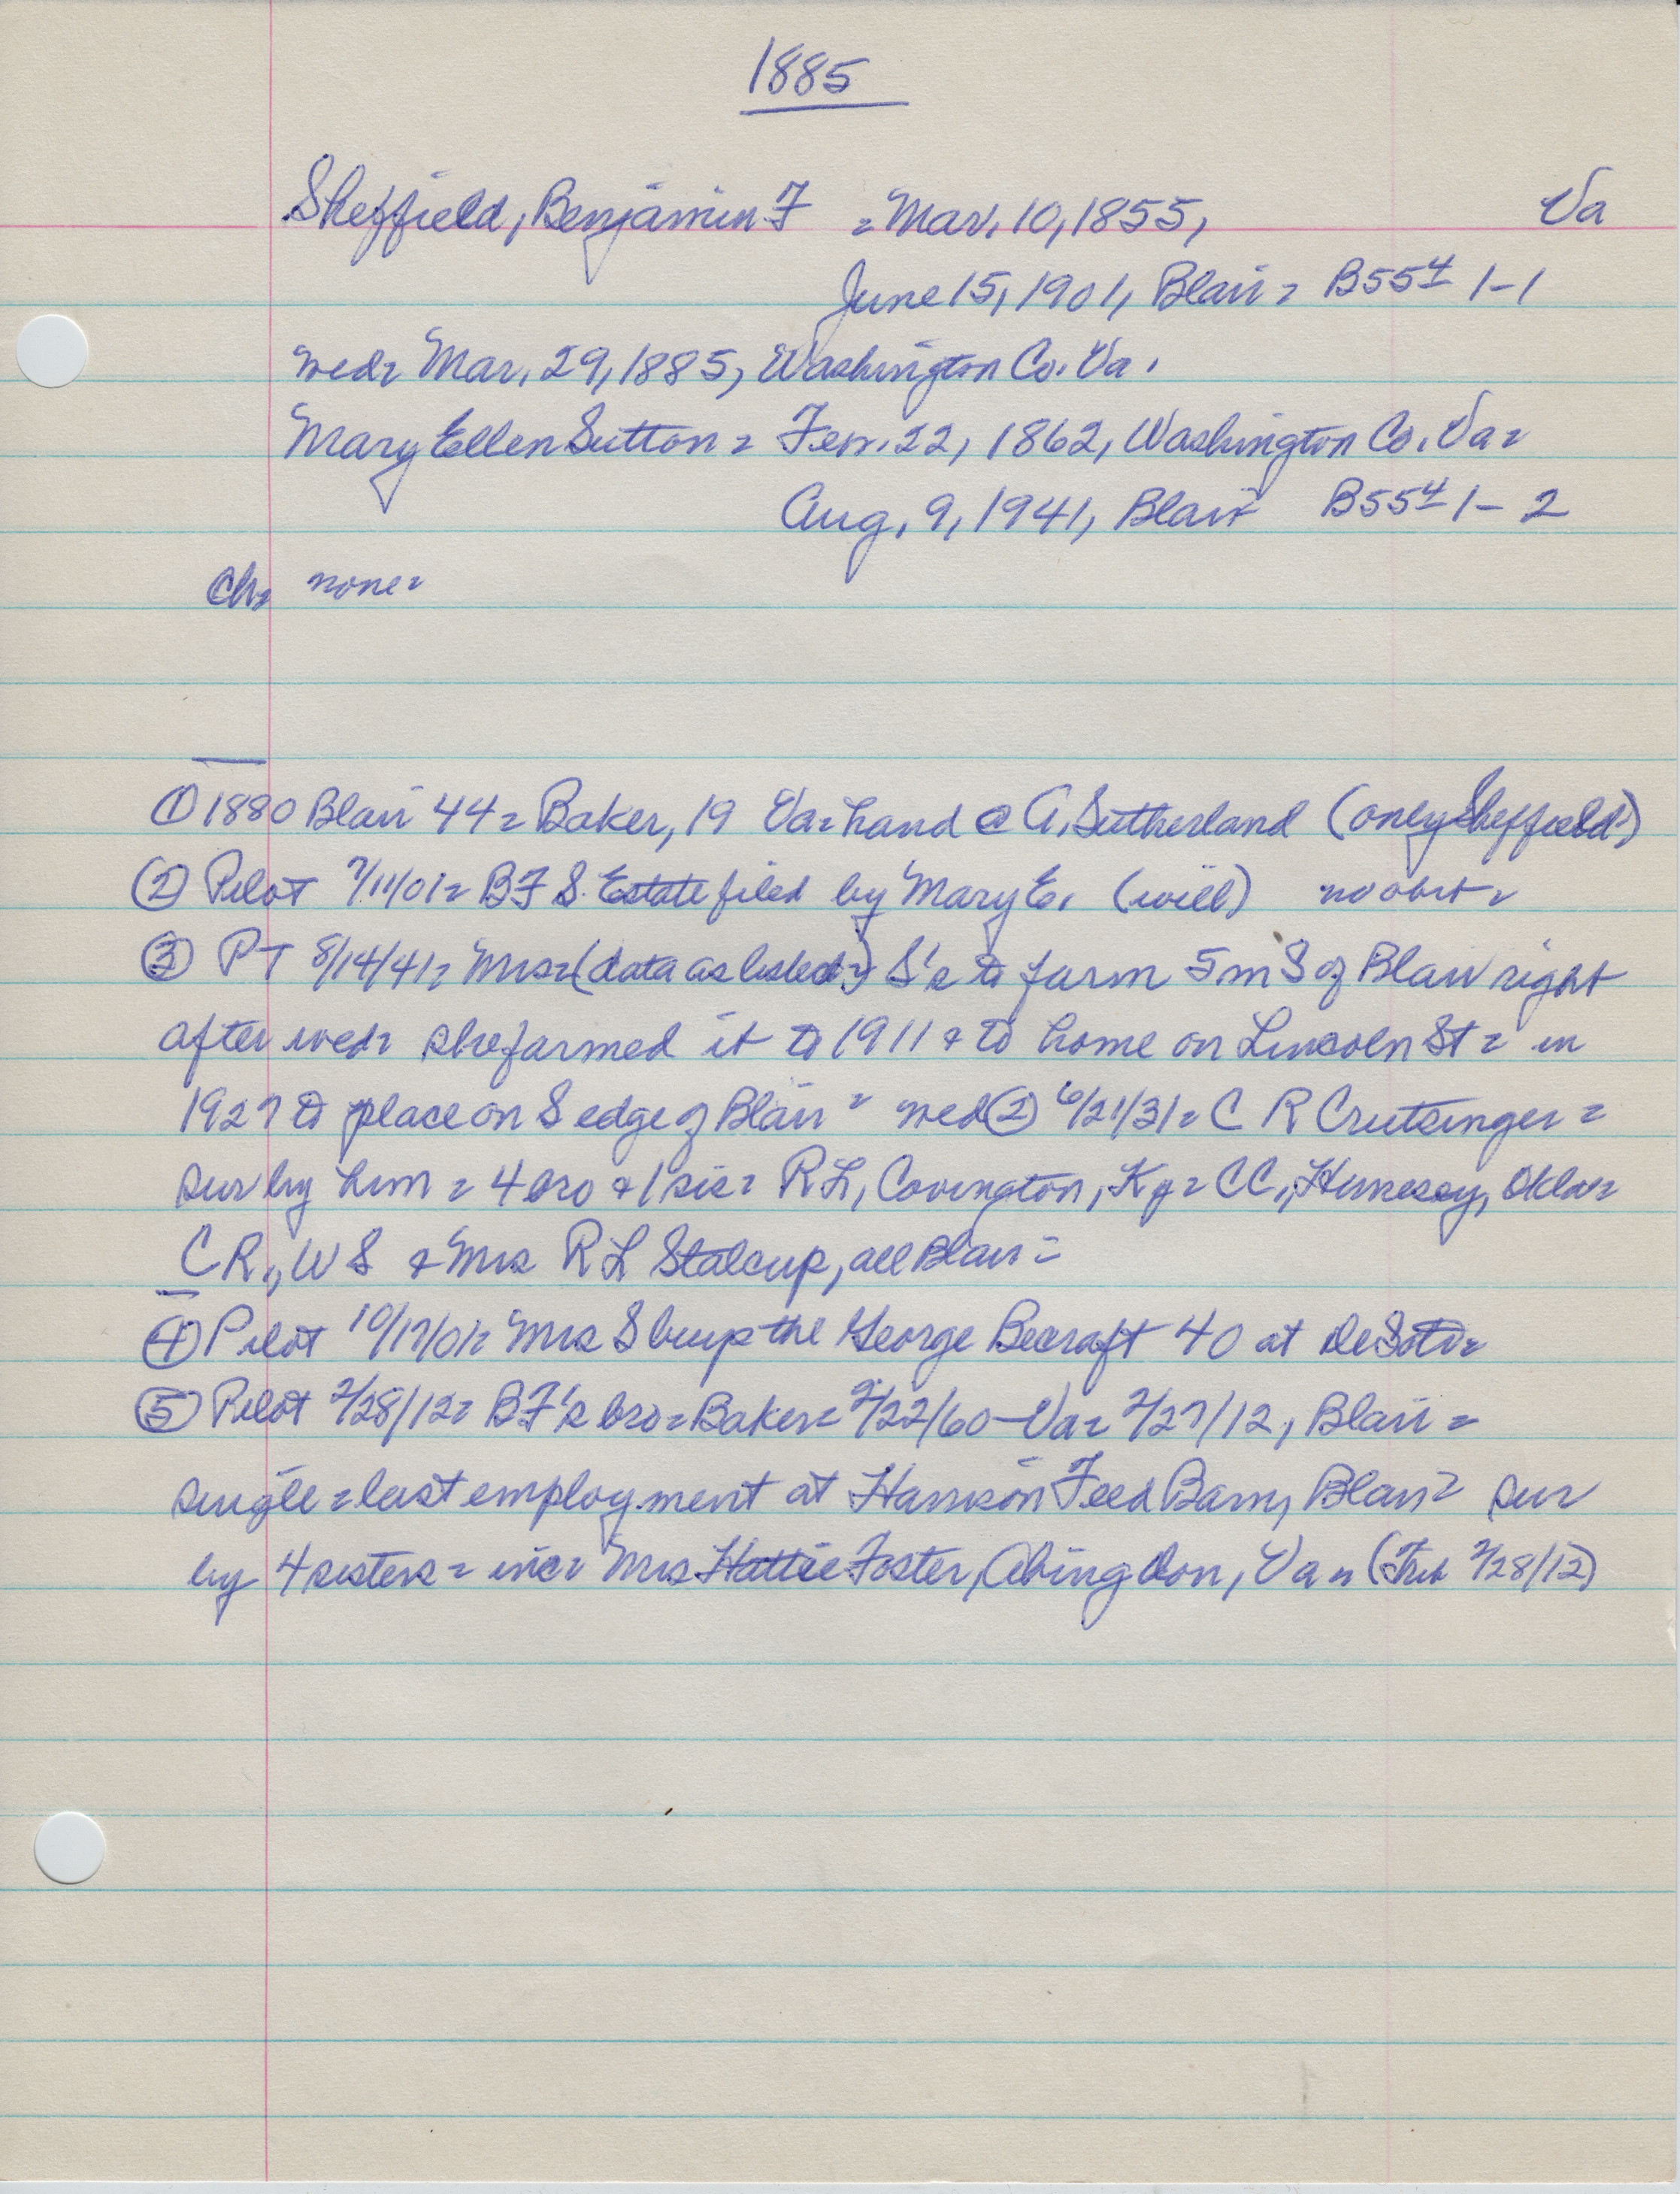 1885
Sheffield, Benjamin F = Mar. 10, 1855, Va
June 15, 1901, Blair = B55 4 1-1
wed= Mar. 29, 1885, Washington Co. Va.
Mary Ellen Sutton = Feb. 22, 1862, Washington Co. Va =
Aug. 9, 1941, Blair B55 4 1-2
Ch= none=
① 1880 Blair 44 = Baker, 19 Va= hand @ A. Sutherland (only Sheffield)
② Pilot 7/11/01= BFS. Estate filed by Mary E. (will) no obit=
③ PT 8/14/41= Mrs= (data as listed=) S's to farm 5 m S of Blair right
after wed= she farmed it to 1911 & to home on Lincoln St = in
1927 to place on S edge of Blair = wed ② 6/21/31= C R Crutsinger =
sur by him = 4 bro & 1 sis= RL, Covington, Ky = CC., Hennesey, Okla=
CR., WS & Mrs R L Stalcup, all Blair =
④ Pilot 10/17/01= Mrs S buys the George Becraft 40 at DeSoto=
⑤ Pilot 2/28/12= BF's bro = Baker= 2/22/60 - Va= 2/27/12, Blair =
single = last employment at Harrison Feed Barn, Blair= sur
by 4 sisters = inc= Mrs Hattie Foster, Abingdon, Va = (Trib 2/28/12)